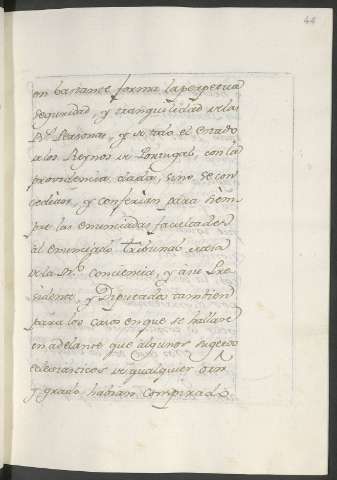 44
en bastante forma la perpetua
seguridad, y tranquilidad de las
Rs. Personas, y de todo el estado
de los Reynos de Portugal, con la
providencia dada, sino se con
cedian, y conferian para siem
pre las enunciadas facultades
al enunciado tribunal
de la Rl. conciencia, y a su Pre
sidente, y Diputados tambien
para los casos en que se hallase
en adelante que algunos sugetos
eclesiasticos de qualquier orn
y grado habian conspirado